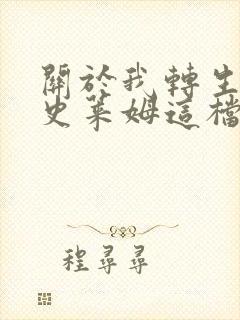 關於我轉生
史萊姆這檔
程尋尋